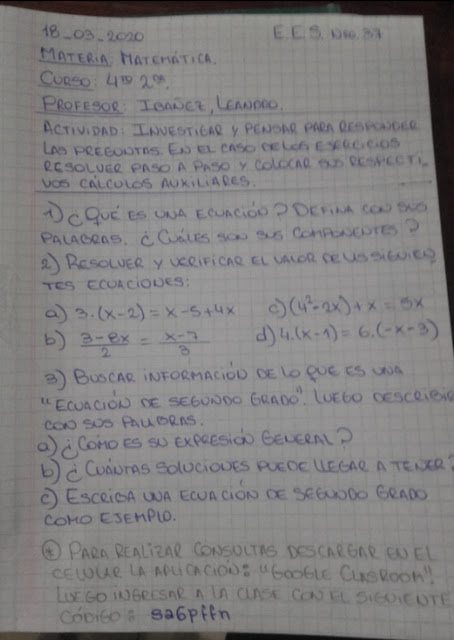 18-03-2020 E.E.S. Nro. 37
MATERIA: MATEMÁTICA.
CURSO: 4to 2da.
PROFESOR: IBAÑEZ, LEANDRO.
ACTIVIDAD: INVESTIGAR Y PENSAR PARA RESPONDER
LAS PREGUNTAS. EN EL CASO DE LOS EJERCICIOS
RESOLVER PASO A PASO Y COLOCAR SUS RESPECTI-
VOS CÁLCULOS AUXILIARES.
1) ¿QUÉ ES UNA ECUACIÓN? DEFINA CON SUS
PALABRAS. ¿CUÁLES SON SUS COMPONENTES?
2) RESOLVER Y VERIFICAR EL VALOR DE LAS SIGUIEN-
TES ECUACIONES:
a) 3.(x-2) = x-5+4x c) (4²-2x)+x = 5x
b) 3-8x/2 = x-7/3 d) 4.(x-1) = 6.(-x-3)
3) BUSCAR INFORMACIÓN DE LO QUE ES UNA
"ECUACIÓN DE SEGUNDO GRADO". LUEGO DESCRIBIR
CON SUS PALABRAS.
a) ¿CÓMO ES SU EXPRESIÓN GENERAL?
b) ¿CUÁNTAS SOLUCIONES PUEDE LLEGAR A TENER?
c) ESCRIBA UNA ECUACIÓN DE SEGUNDO GRADO
COMO EJEMPLO.
PARA REALIZAR CONSULTAS DESCARGAR EN EL
CELULAR LA APLICACIÓN: "GOOGLE CLASROOM".
LUEGO INGRESAR A LA CLASE CON EL SIGUIENTE
CÓDIGO: sa6pffn